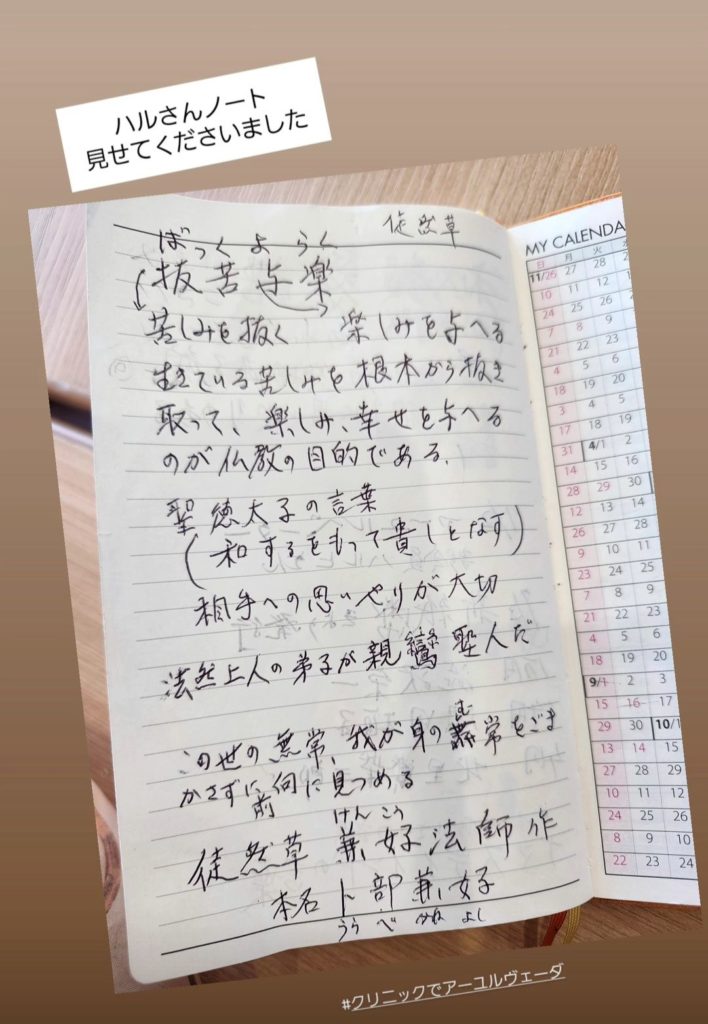 ハルさんノート
見せてくださいました
徒然草
ばっくよらく
抜苦与楽
苦しみを抜く 楽しみを与へる
生きている苦しみを根本から抜き
取って、楽しみ、幸せを与へる
のが仏教の目的である。
聖徳太子の言葉
(和するをもって貴しとなす)
相手への思いやりが大切
法然上人の弟子が親鸞聖人だ
この世の無常、我が身の無常をごま
む
かさずに前向に見つめる
けんこう
徒然草 兼好法師作
本名 卜部兼好
うらべ かねよし
MY CALENDA
日 月 火
11/26 27 28
10 11 12
24 25 26
7 8 9
21 22 23
4 5 6
18 19 20
3 4 5
17 18 19
31 4/1 2
14 15 16
28 29 30
12 13 14
26 27 28
9 10 11
23 24 25
7 8 9
21 22 23
4 5 6
18 19 20
9/1 2 3
15 16 17
29 30 10/1
13 14 15
27 28 29
10 11 12
24 25 26
8 9 10
22 23 24
#クリニックでアーユルヴェーダ